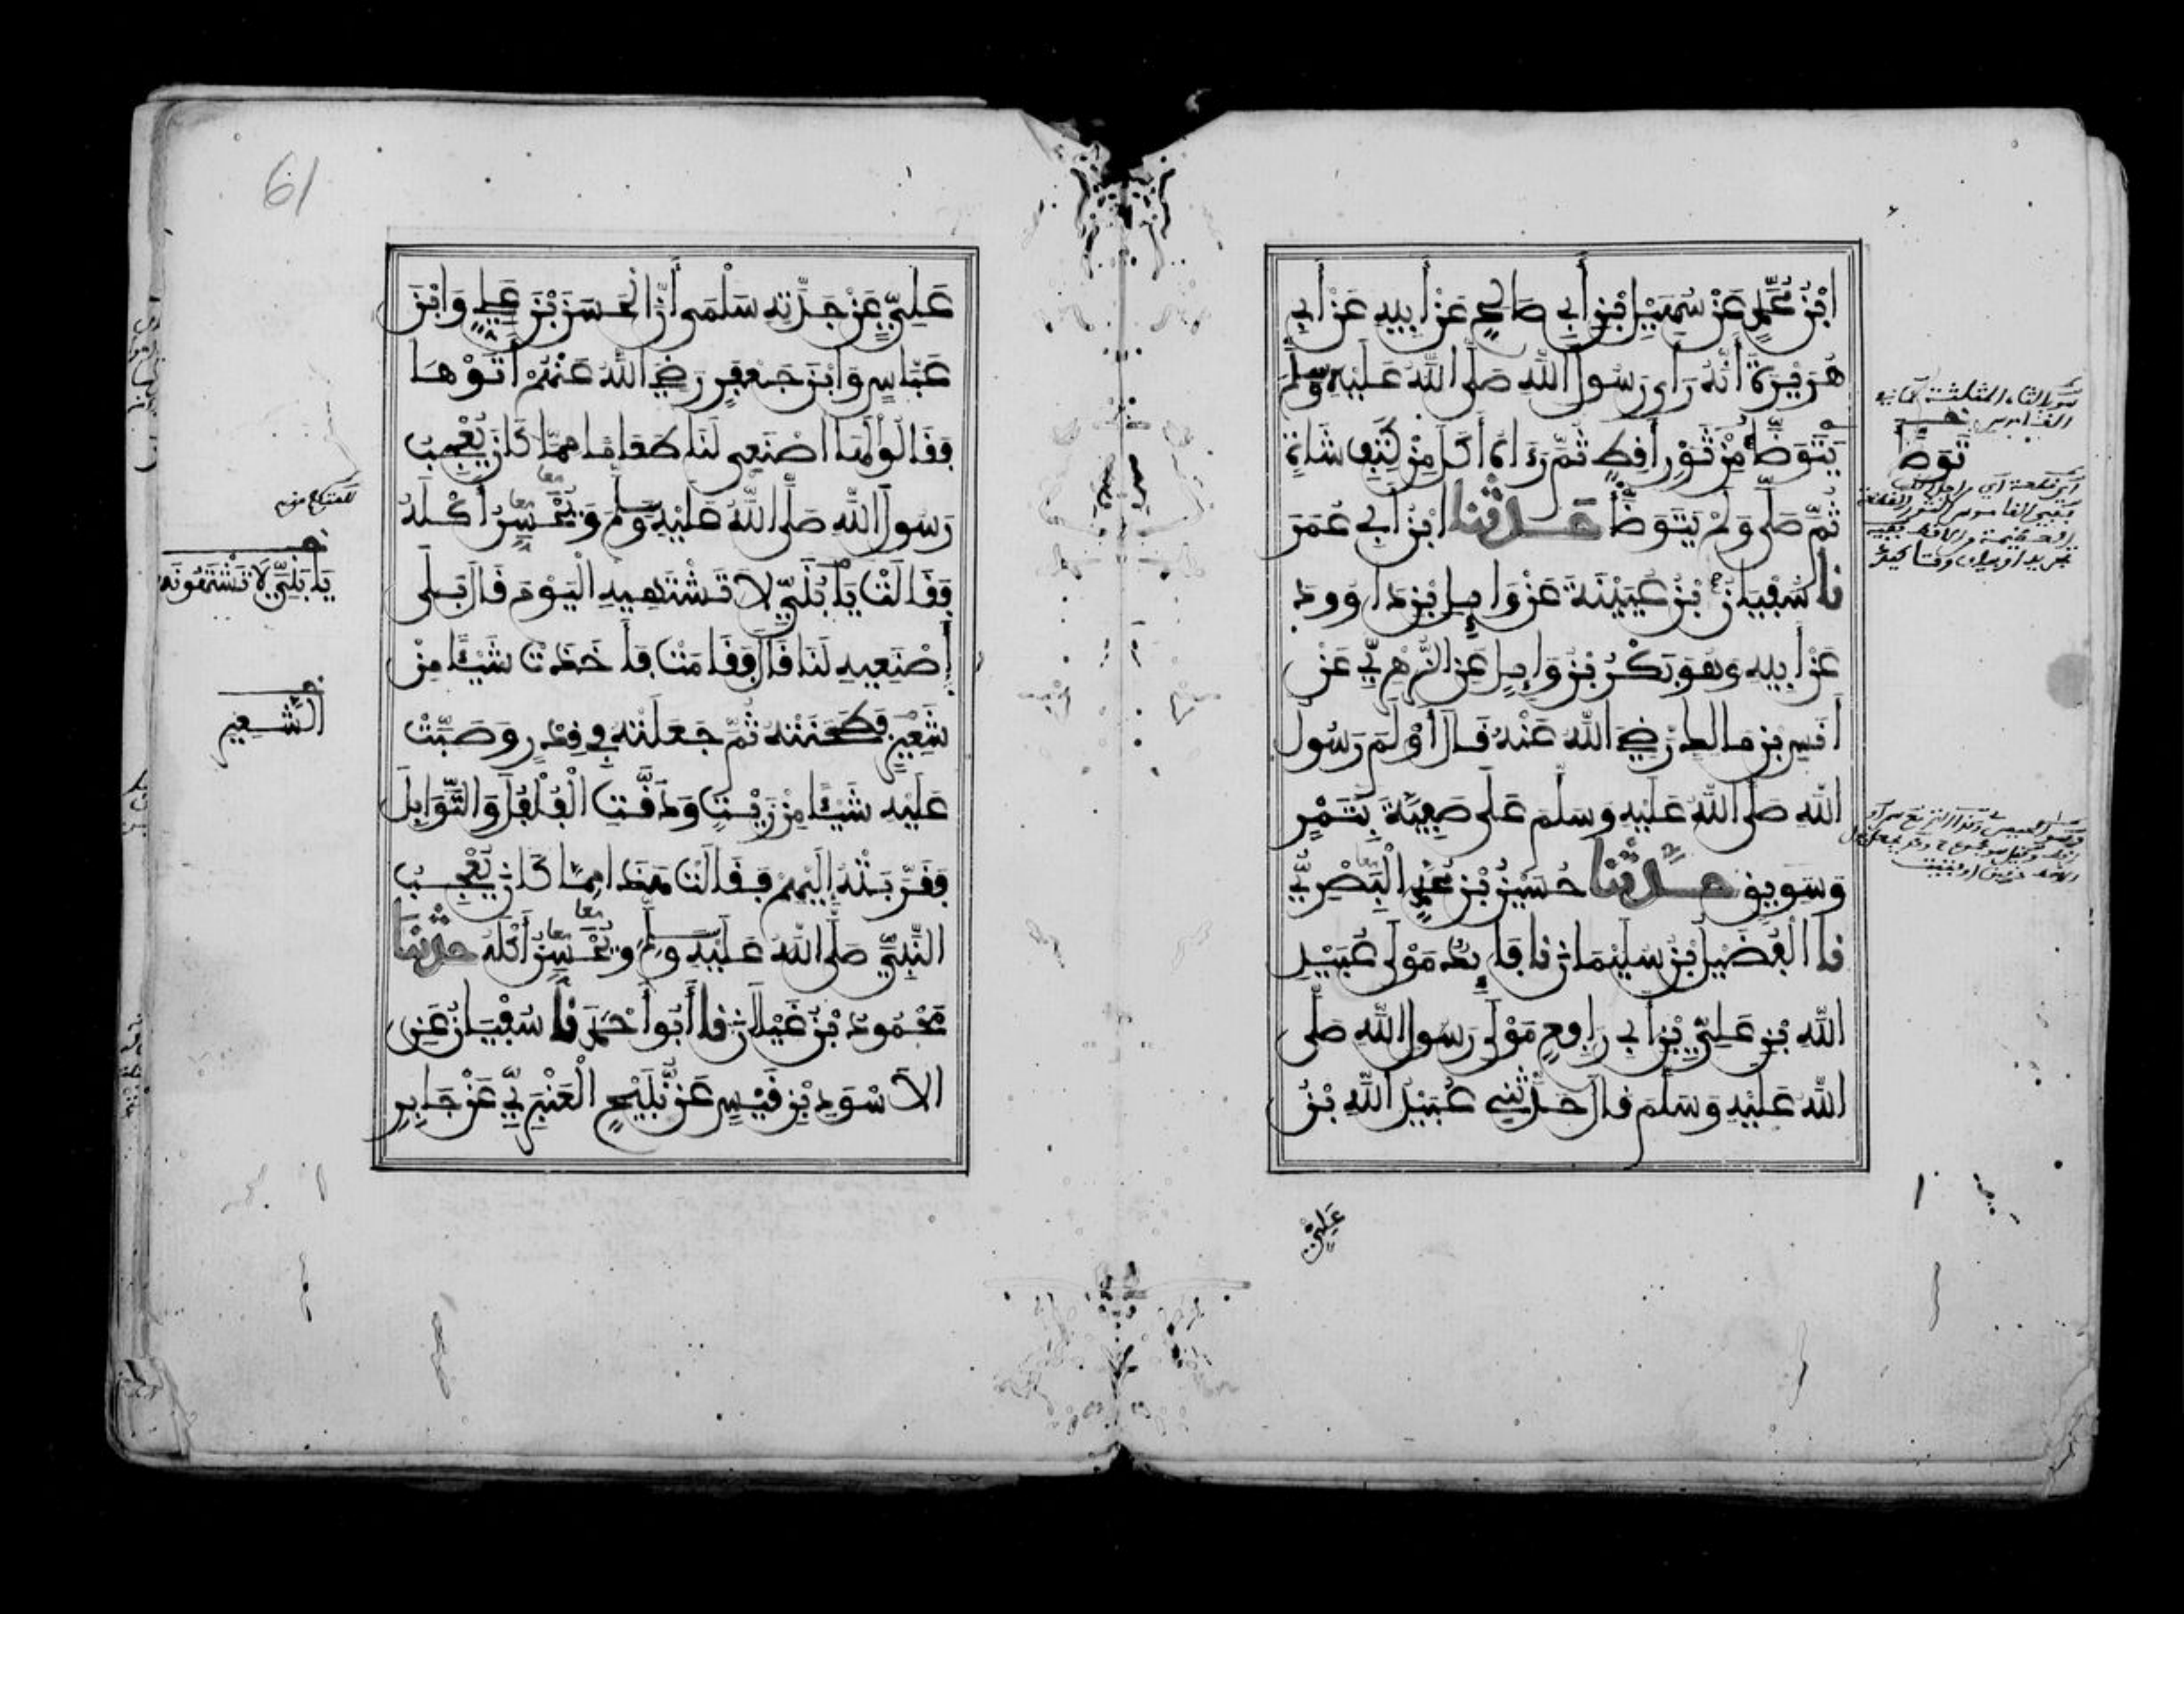 ابْنُ مُحَمَّدٍ عَنْ سُهَيْلِ بْنِ أَبِي صَالِحٍ عَنْ أَبِيهِ عَنْ أَبِي
هُرَيْرَةَ أَنَّهُ رَأَى رَسُولَ اللَّهِ صَلَّى اللَّهُ عَلَيْهِ وَسَلَّمَ
يَتَوَضَّأُ مِنْ ثَوْرِ أَقِطٍ ثُمَّ رَءَاهُ أَكَلَ مِنْ كَتِفِ شَاةٍ
ثُمَّ صَلَّى وَلَمْ يَتَوَضَّأْ حَدَّثَنَا ابْنُ أَبِي عُمَرَ
نا سُفْيَانُ بْنُ عُيَيْنَةَ عَنْ وَائِلِ بْنِ دَاوُودَ
عَنْ أَبِيهِ وَهُوَ بَكْرُ بْنُ وَائِلٍ عَنِ الزُّهْرِيِّ عَنْ
أَنَسِ بْنِ مَالِكٍ رَضِيَ اللَّهُ عَنْهُ قَالَ أَوْلَمَ رَسُولُ
اللَّهِ صَلَّى اللَّهُ عَلَيْهِ وَسَلَّمَ عَلَى صَفِيَّةَ بِتَمْرٍ
وَسَوِيقٍ حَدَّثَنَا حُسَيْنُ بْنُ مُحَمَّدٍ الْبَصْرِيُّ
نا الْفُضَيْلُ بْنُ سُلَيْمَانَ نا فَائِدٌ مَوْلَى عُبَيْدِ
اللَّهِ بْنِ عَلِيِّ بْنِ أَبِي رَافِعٍ مَوْلَى رَسُولِ اللَّهِ صَلَّى
اللَّهُ عَلَيْهِ وَسَلَّمَ قَالَ حَدَّثَنِي عُبَيْدُ اللَّهِ بْنُ
عَلِيٍّ
تَوَضَّأَ
61
عَلِيٍّ عَنْ جَدَّتِهِ سَلْمَى أَنَّ الْحَسَنَ بْنَ عَلِيٍّ وَابْنَ
عَبَّاسٍ وَابْنَ جَعْفَرٍ رَضِيَ اللَّهُ عَنْهُمْ أَتَوْهَا
فَقَالُوا لَهَا اصْنَعِي لَنَا طَعَامًا مِمَّا كَانَ يُعْجِبُ
رَسُولَ اللَّهِ صَلَّى اللَّهُ عَلَيْهِ وَسَلَّمَ وَيُحْسِنُ أَكْلَهُ
فَقَالَتْ يَا بُنَيَّ لَا تَشْتَهِيهِ الْيَوْمَ قَالَ بَلَى
اصْنَعِيهِ لَنَا قَالَ فَقَامَتْ فَأَخَذَتْ شَيْئًا مِنْ
شَعِيرٍ فَطَحَنَتْهُ ثُمَّ جَعَلَتْهُ فِي قِدْرٍ وَصَبَّتْ
عَلَيْهِ شَيْئًا مِنْ زَيْتٍ وَدَقَّتِ الْفُلْفُلَ وَالتَّوَابِلَ
فَقَرَّبَتْهُ إِلَيْهِمْ فَقَالَتْ هَذَا مِمَّا كَانَ يُعْجِبُ
النَّبِيَّ صَلَّى اللَّهُ عَلَيْهِ وَسَلَّمَ وَيُحْسِنُ أَكْلَهُ حَدَّثَنَا
مَحْمُودُ بْنُ غَيْلَانَ نا أَبُو أَحْمَدَ نا سُفْيَانُ عَنِ
الْأَسْوَدِ بْنِ قَيْسٍ عَنْ نُبَيْحٍ الْعَنَزِيِّ عَنْ جَابِرِ
يَا بُنَيَّ لَا تَشْتَهُونَهُ
الشَّعِيرِ